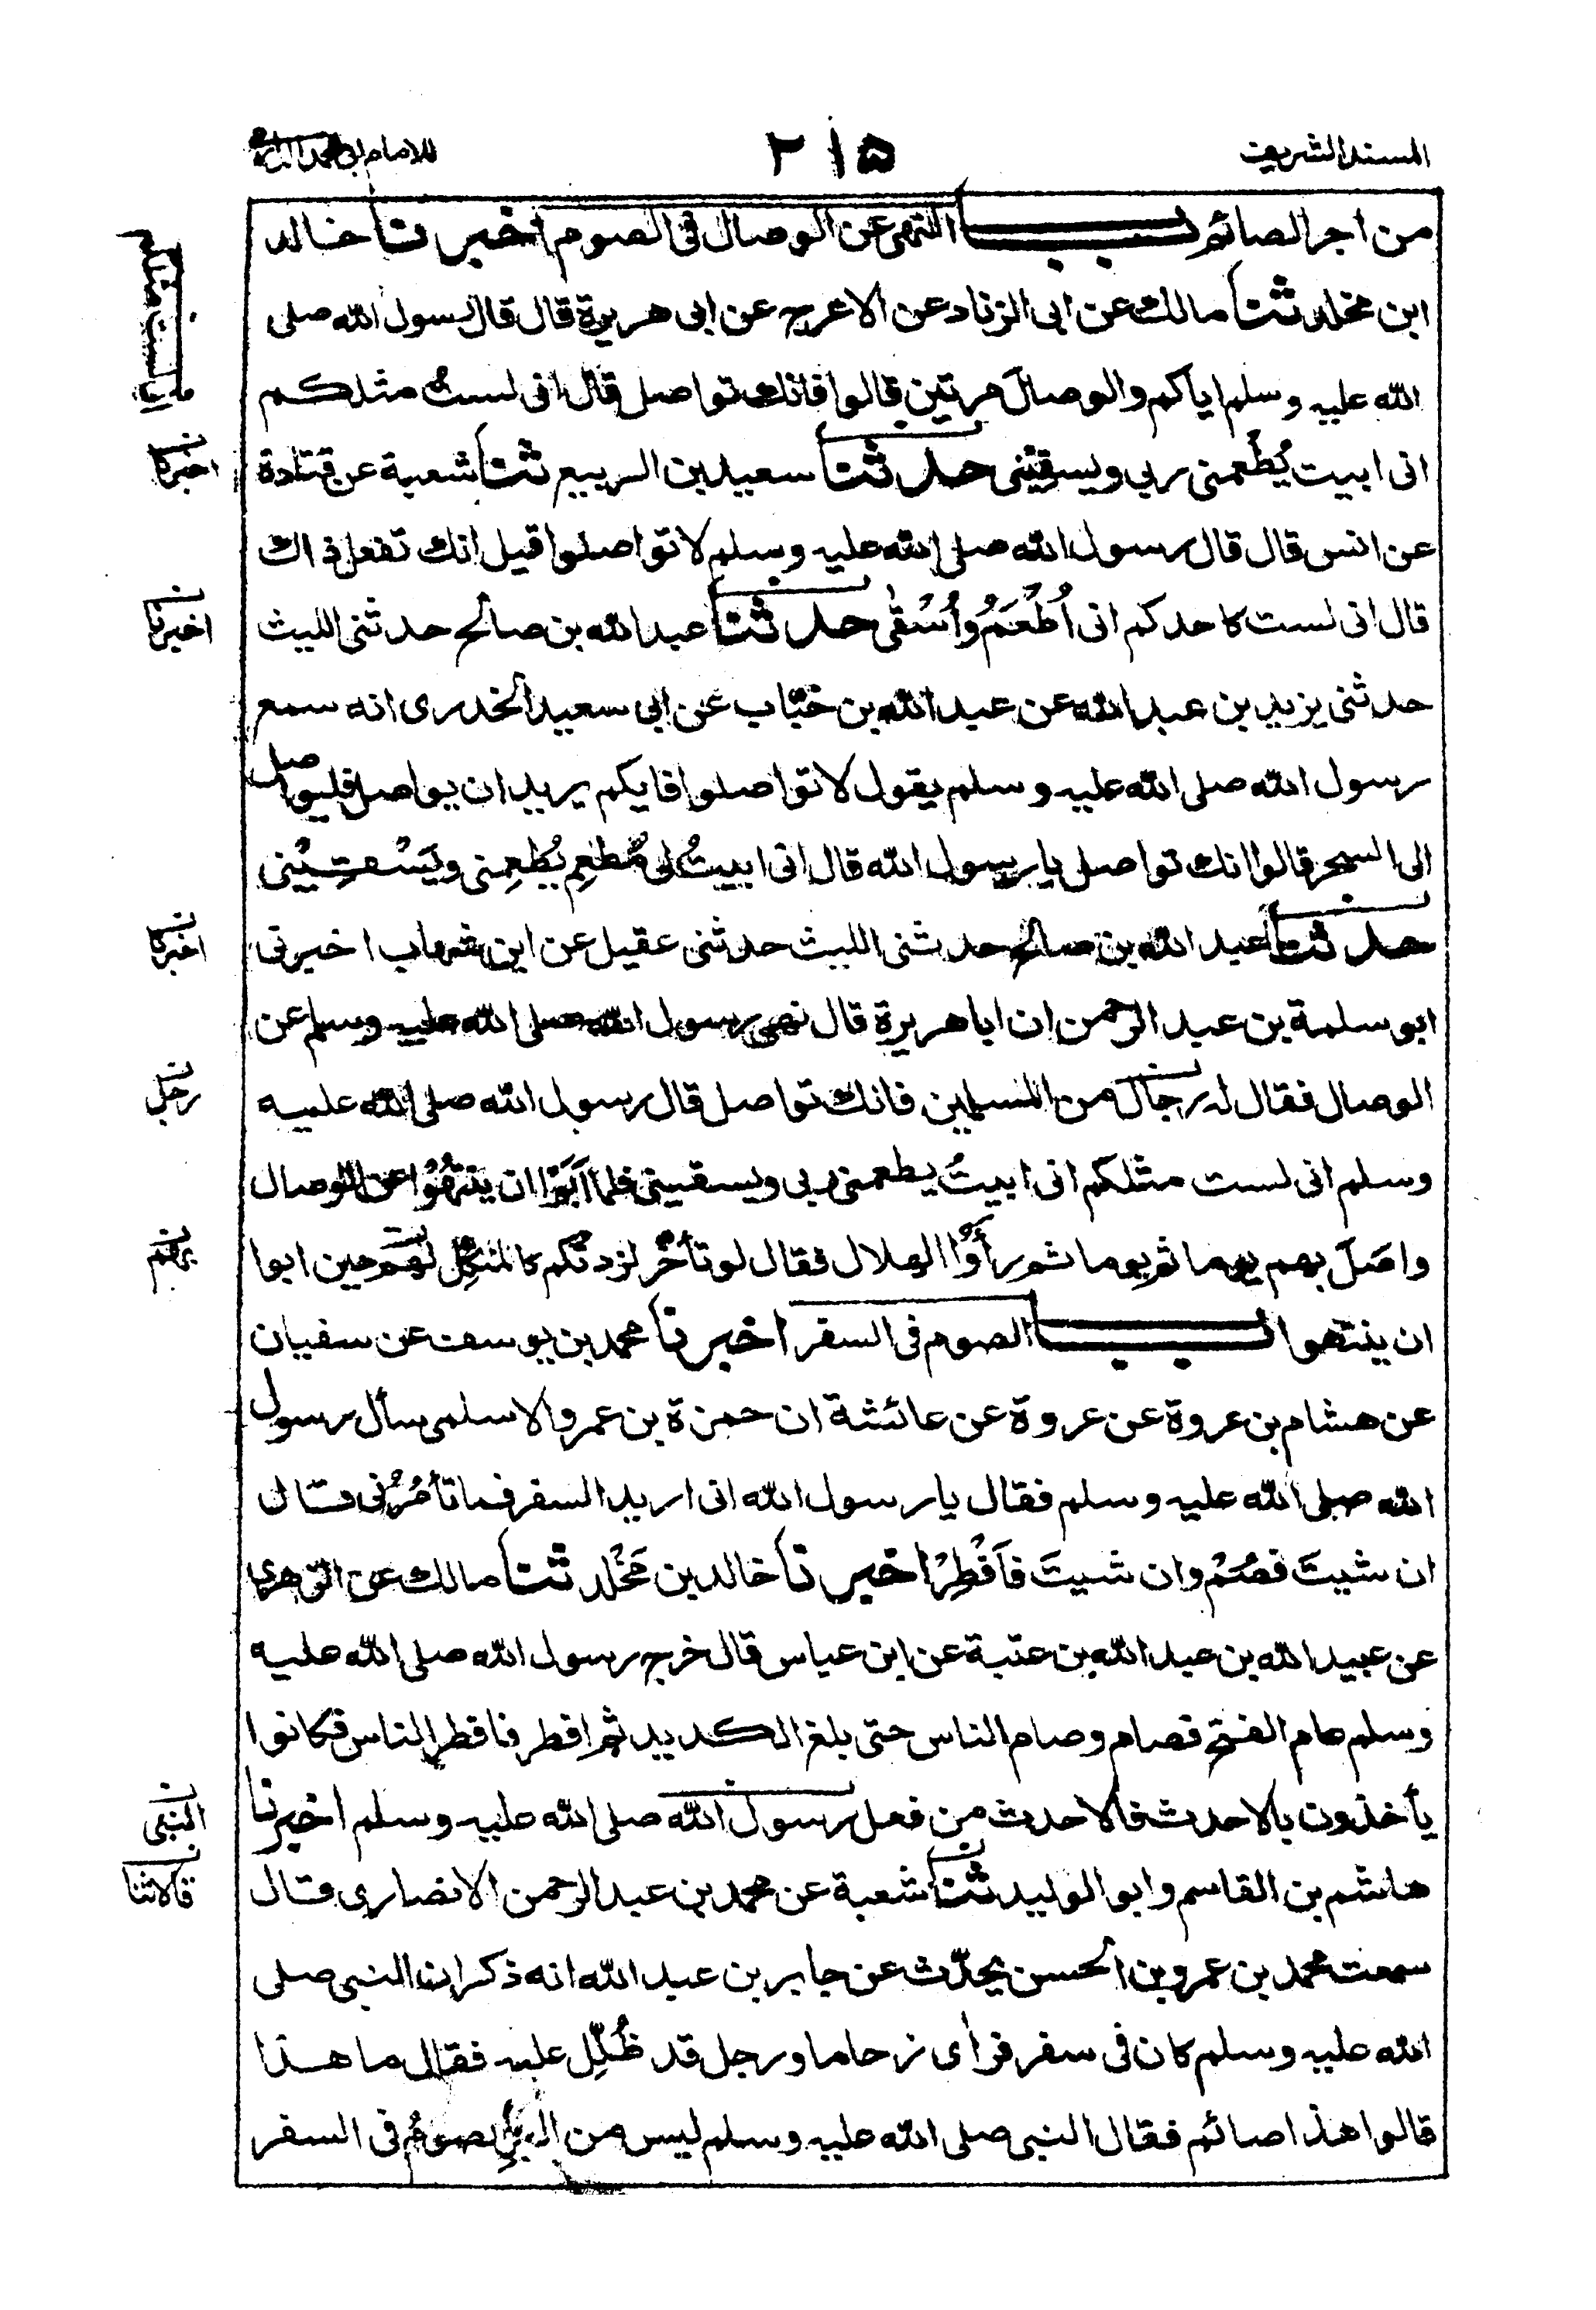 المسند الشريف
٢١٥
للامام ابي محمد الدارمي
من اجر الصائم باب النهي عن الوصال في الصوم اخبرنا خالد
ابن مخلد ثنا مالك عن ابي الزناد عن الاعرج عن ابي هريرة قال قال رسول الله صلى
الله عليه وسلم اياكم والوصال مرتين قالوا فانك تواصل قال اني لستُ مثلكم
اني ابيت يُطْعمني ربي ويسقيني حدثنا سعيد بن الربيع ثنا شعبة عن قتادة
اخبرنا
عن انس قال قال رسول الله صلى الله عليه وسلم لا تواصلوا قيل انك تفعل ذاك
قال اني لست كاحدكم اني اُطْعَمُ واُسْقٰى حدثنا عبد الله بن صالح حدثني الليث
اخبرنا
حدثني يزيد بن عبد الله عن عبد الله بن خبّاب عن ابي سعيد الخدري انه سمع
رسول الله صلى الله عليه وسلم يقول لا تواصلوا فايكم يريد ان يواصل فليواصل
الى السحر قالوا انك تواصل يا رسول الله قال اني ابيتُ لي مُطعِم يُطعِمني ويَسْقِيْني
حدثنا عبد الله بن صالح حدثني الليث حدثني عقيل عن ابن شهاب اخبرني
اخبرنا
ابو سلمة بن عبد الرحمن ان ابا هريرة قال نهى رسول الله صلى الله عليه وسلم عن
الوصال فقال له رجال من المسلمين فانك تواصل قال رسول الله صلى الله عليه
رجل
وسلم اني لست مثلكم اني ابيتُ يطعمني ربي ويسقيني فلما اَبَوْا ان ينتهُوْا عن الوصال
واصَلَ بهم يوما ثم يوما ثم رأَوُا الهلال فقال لو تأخَّر لزدتكم كالمنَكِّل لهم حين ابوا
بهم
ان ينتهوا باب الصوم في السفر اخبرنا محمد بن يوسف عن سفيان
عن هشام بن عروة عن عروة عن عائشة ان حمزة بن عمرو الاسلمي سأل رسول
الله صلى الله عليه وسلم فقال يا رسول الله اني اريد السفر فما تأمُرُني قال
ان شيتَ فصُمْ وان شيتَ فَاَفْطِرْ اخبرنا خالد بن مَخْلد ثنا مالك عن الزهري
عن عبيد الله بن عبد الله بن عتبة عن ابن عباس قال خرج رسول الله صلى الله عليه
وسلم عام الفتح فصام وصام الناس حتى بلغ الكديد ثم افطر فافطر الناس فكانوا
يأخذون بالاحدث فالاحدث من فعل رسول الله صلى الله عليه وسلم اخبرنا
النبي
هاشم بن القاسم وابو الوليد ثنا شعبة عن محمد بن عبد الرحمن الانصاري قال
قالا ثنا
سمعت محمد بن عمرو بن الحسن يحدّث عن جابر بن عبد الله انه ذكر ان النبي صلى
الله عليه وسلم كان في سفر فرأى زحاما ورجل قد ظُلِّل عليه فقال ما هذا
قالوا هذا صائم فقال النبي صلى الله عليه وسلم ليس من البِرِّ الصومُ في السفر